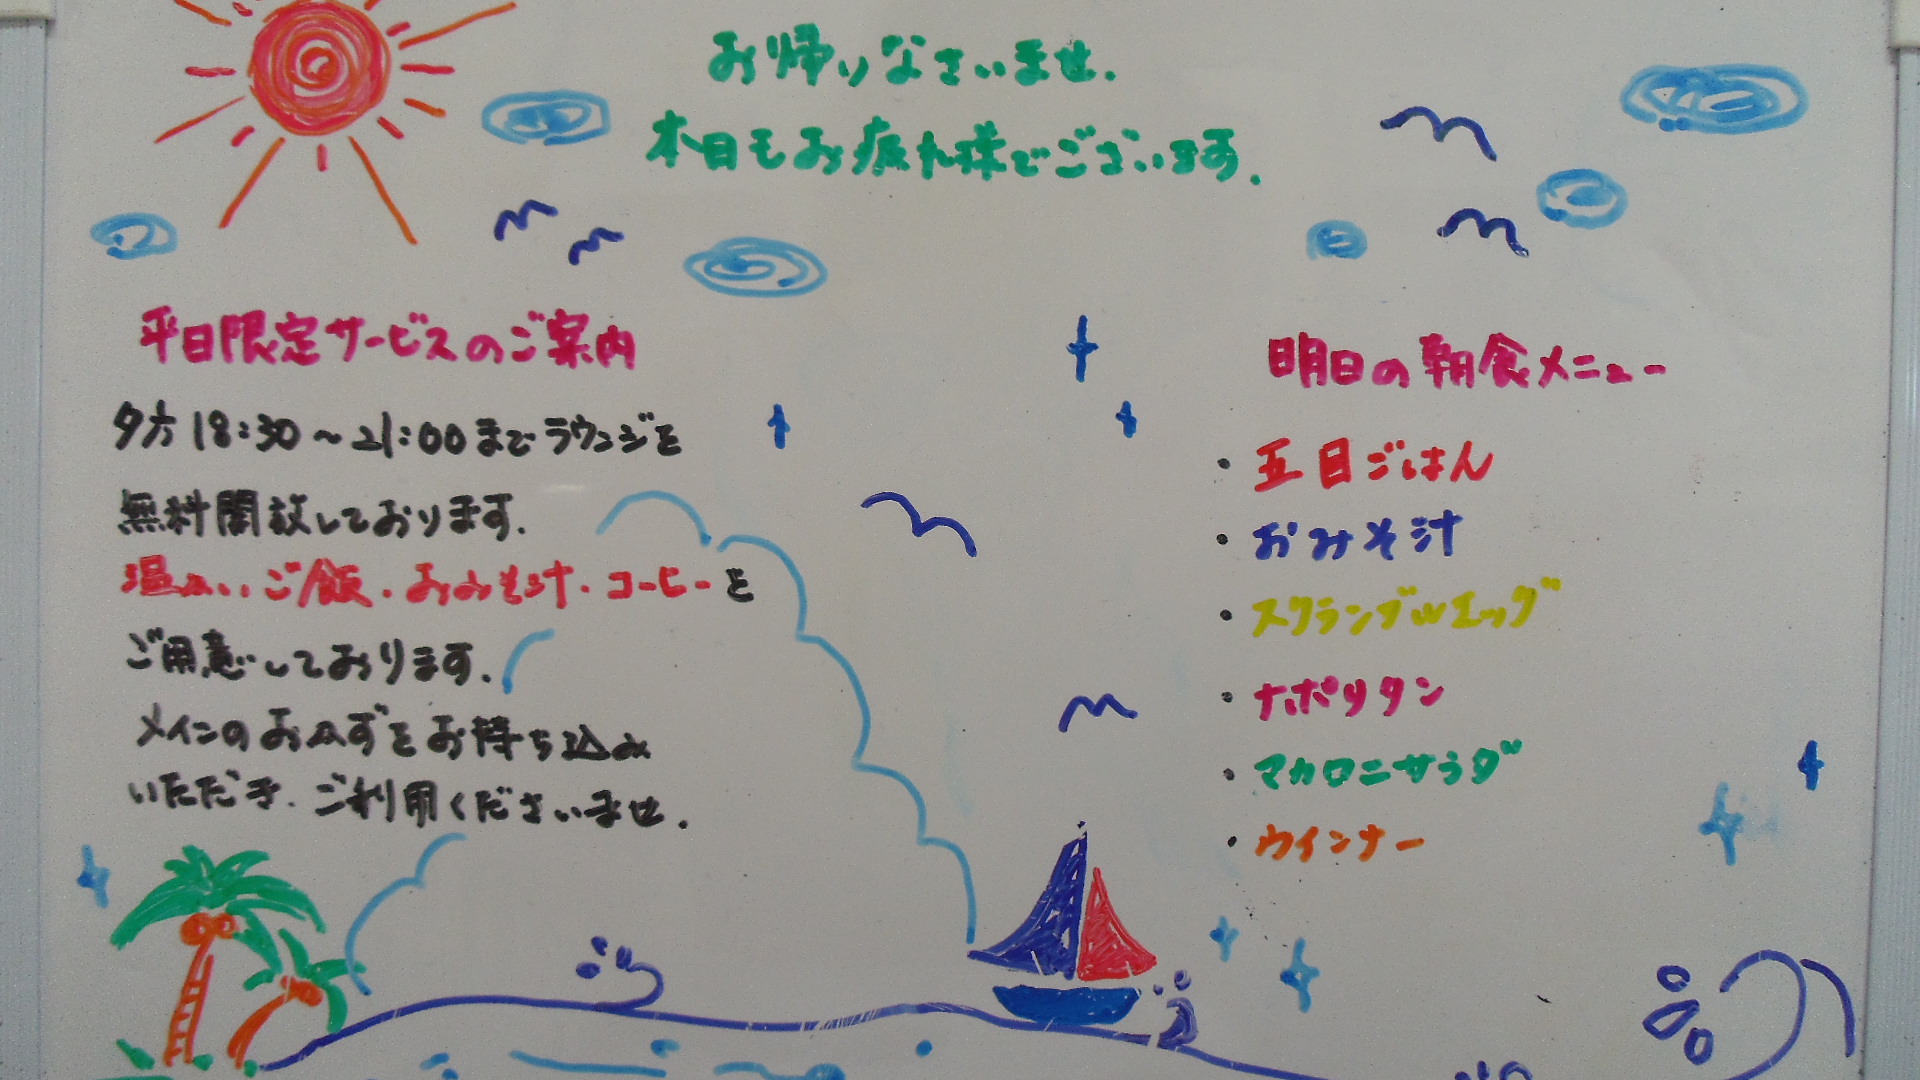 お帰りなさいませ.
本日もお疲れ様でございます.
平日限定サービスのご案内
夕方18:30～21:00までラウンジを
無料開放しております.
温かいご飯・おみそ汁・コーヒーを
ご用意しております.
メインのおかずをお持ち込み
いただき.ご利用くださいませ.
明日の朝食メニュー
・五目ごはん
・おみそ汁
・スクランブルエッグ
・ナポリタン
・マカロニサラダ
・ウインナー